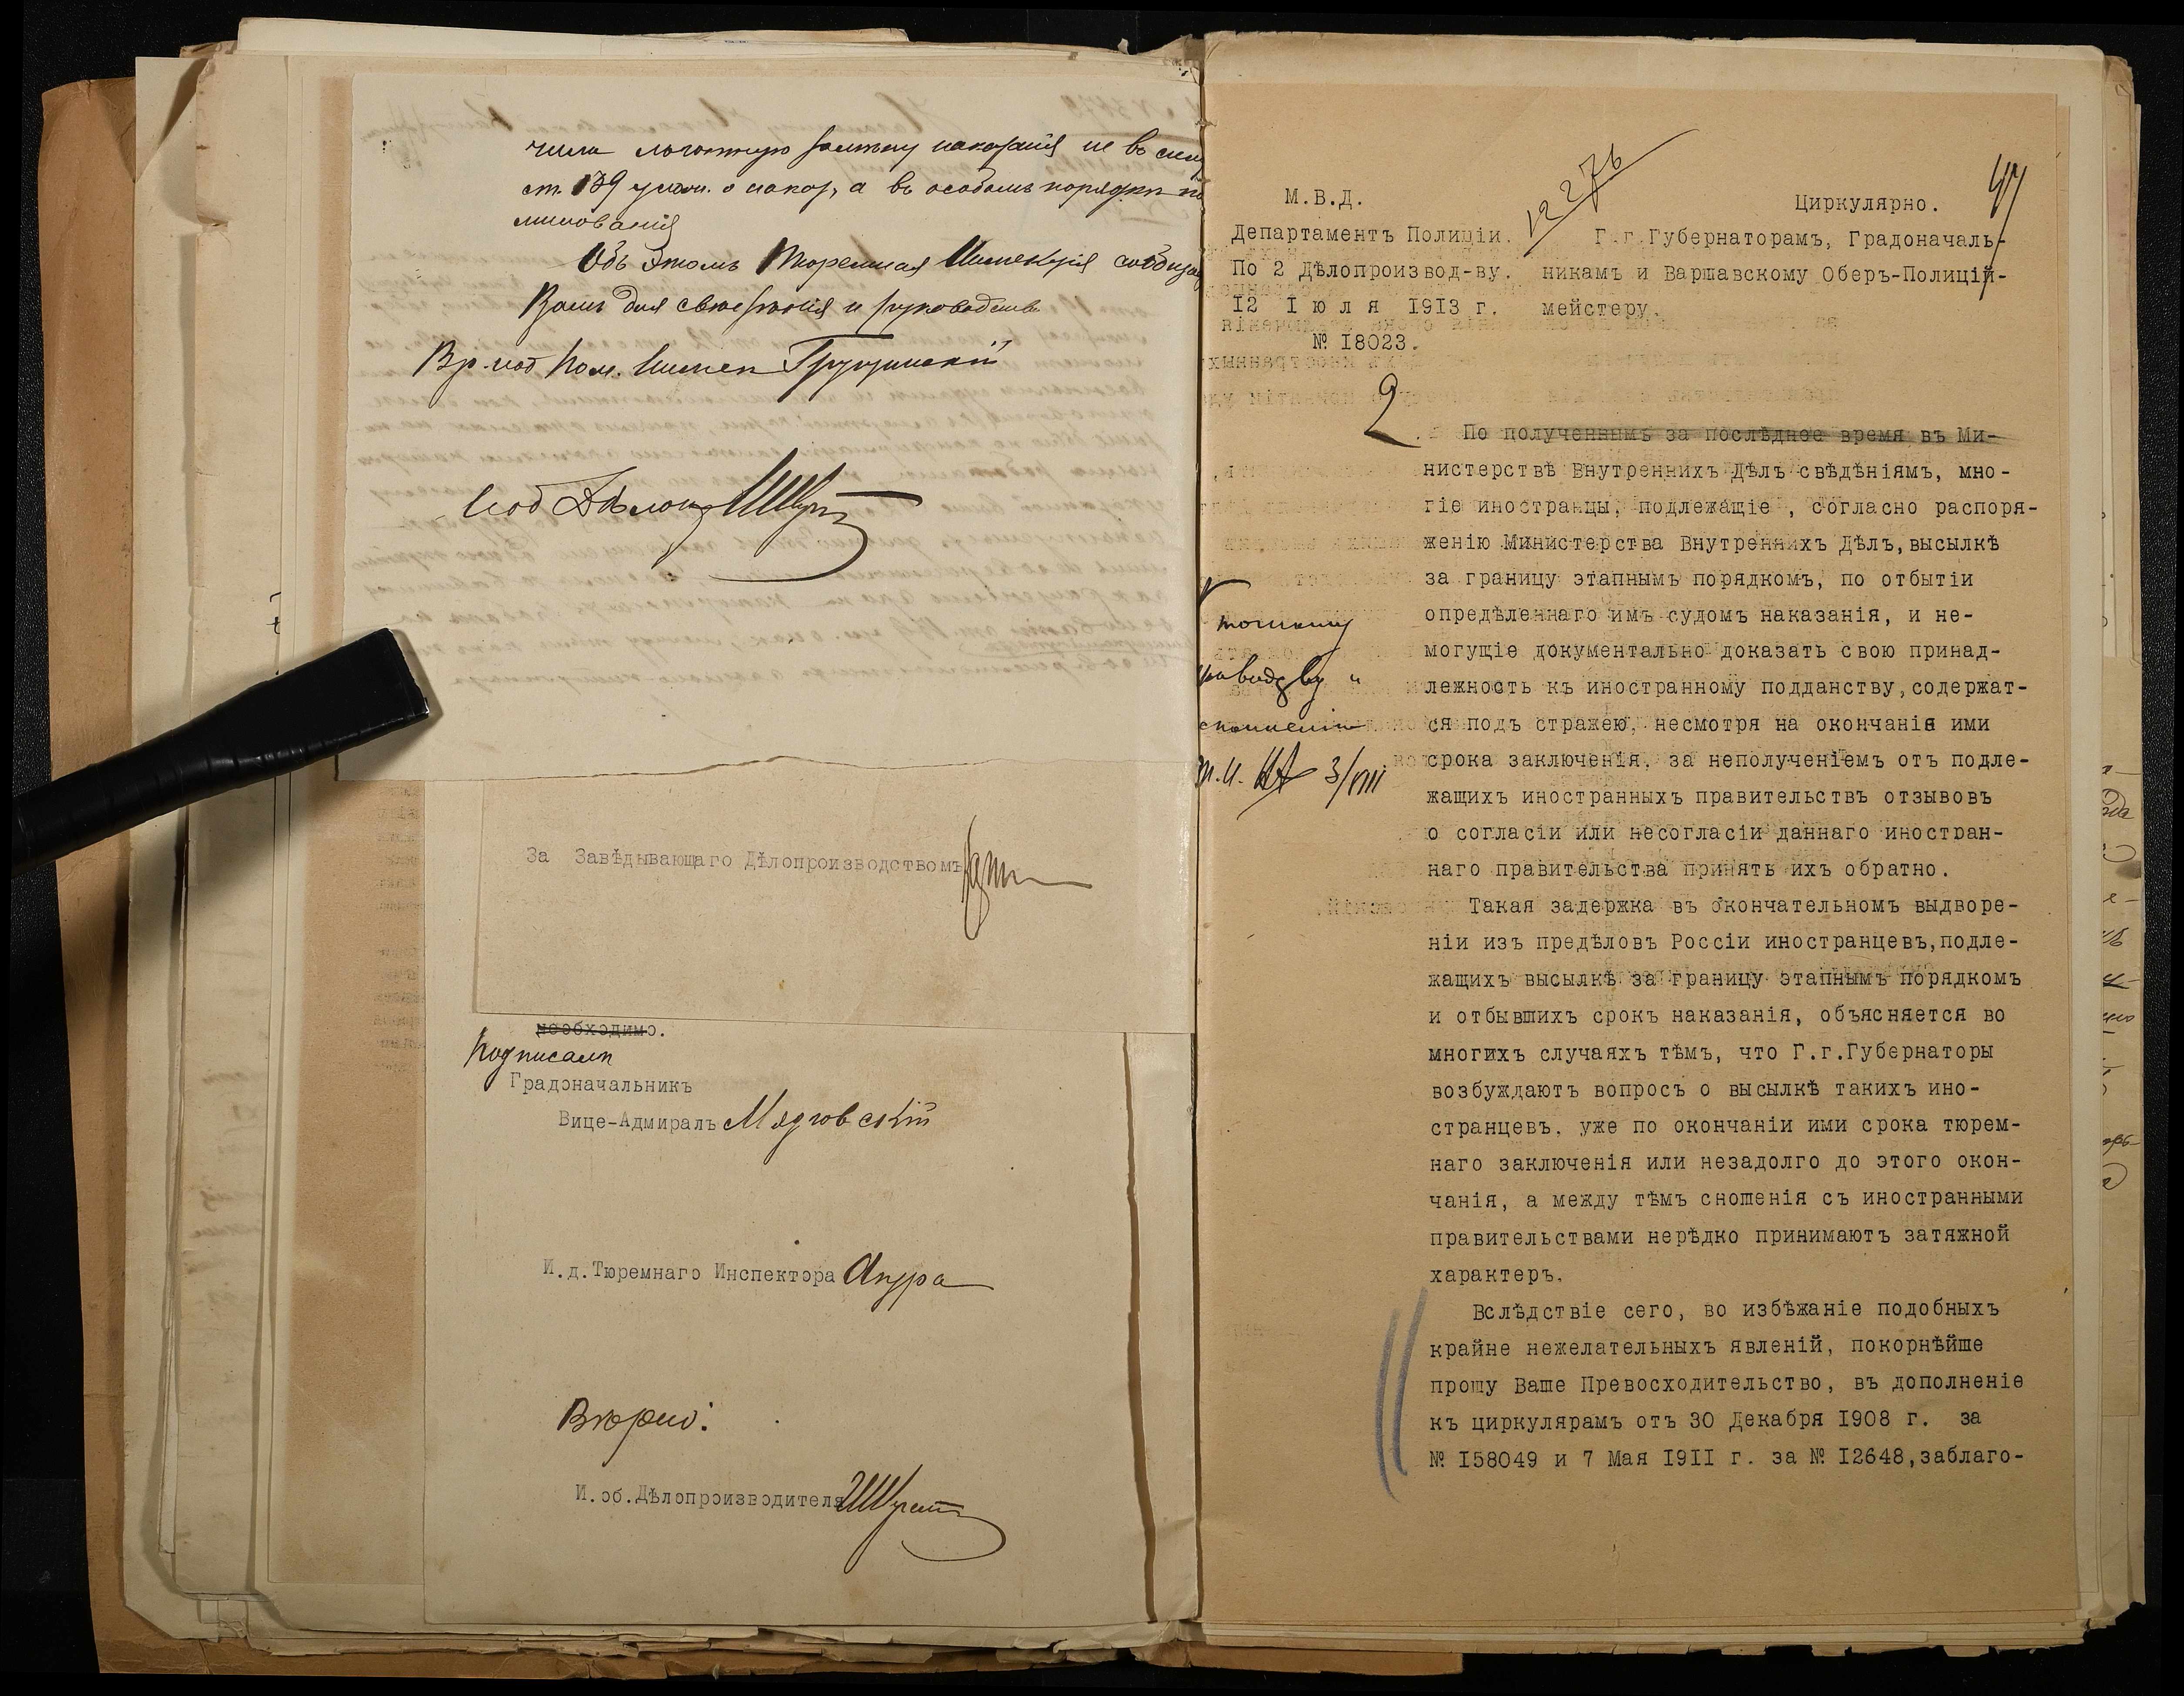 ст. 139 а въ особомъ порядкѣ
Объ этомъ Тюремная Инспекція
Вамъ для свѣдѣнія и руководства
За Завѣдывающаго Дѣлопроизводствомъ
необходимо.
Подписалъ
Градоначальникъ
Вице-Адмиралъ Мязговскій
И.д.Тюремнаго Инспектора
Вѣрно:
И.об.Дѣлопроизводителя
12276
47
М.В.Д.
Циркулярно.
Департаментъ Полиціи.
Г.г.Губернаторамъ, Градоначаль-
По 2 Дѣлопроизвод-ву.
никамъ и Варшавскому Оберъ-Полицій-
12 Іюля 1913 г.
мейстеру.
№ 18023.
2.
По полученнымъ за послѣднее время въ Ми-
нистерствѣ Внутреннихъ Дѣлъ свѣдѣніямъ, мно-
гіе иностранцы, подлежащіе , согласно распоря-
женію Министерства Внутреннихъ Дѣлъ,высылкѣ
за границу этапнымъ порядкомъ, по отбытіи
опредѣленнаго имъ судомъ наказанія, и не-
могущіе документально доказать свою принад-
лежность къ иностранному подданству,содержат-
ся подъ стражею, несмотря на окончанія ими
срока заключенія, за неполученіемъ отъ подле-
жащихъ иностранныхъ правительствъ отзывовъ
о согласіи или несогласіи даннаго иностран-
наго правительства принять ихъ обратно.
Такая задержка въ окончательномъ выдворе-
ніи изъ предѣловъ Россіи иностранцевъ,подле-
жащихъ высылкѣ за границу этапнымъ порядкомъ
и отбывшихъ срокъ наказанія, объясняется во
многихъ случаяхъ тѣмъ, что Г.г.Губернаторы
возбуждаютъ вопросъ о высылкѣ такихъ ино-
странцевъ, уже по окончаніи ими срока тюрем-
наго заключенія или незадолго до этого окон-
чанія, а между тѣмъ сношенія съ иностранными
правительствами нерѣдко принимаютъ затяжной
характеръ.
Вслѣдствіе сего, во избѣжаніе подобныхъ
крайне нежелательныхъ явленій, покорнѣйше
прошу Ваше Превосходительство, въ дополненіе
къ циркулярамъ отъ 30 Декабря 1908 г. за
№ 158049 и 7 Мая 1911 г. за № 12648,заблаго-
3/VIII